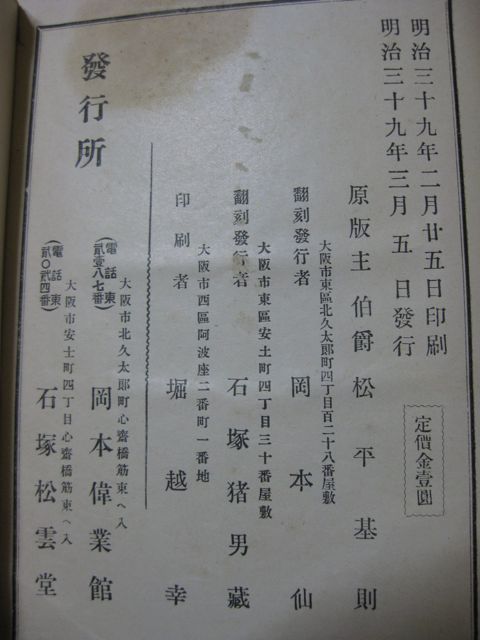 明治三十九年二月廿五日印刷
明治三十九年三月五日發行
定價金壹圓
原版主 伯爵 松平基則
大阪市東區北久太郎町四丁目百二十八番屋敷
翻刻發行者 岡本仙
大阪市東區安土町四丁目三十番屋敷
翻刻發行者 石塚猪男藏
大阪市西區阿波座二番町一番地
印刷者 堀越幸
發行所
大阪市北久太郎町心齋橋筋東ヘ入
(電話東貳壹八七番) 岡本偉業館
大阪市安土町四丁目心齋橋筋東ヘ入
(電話東貳〇貳四番) 石塚松雲堂